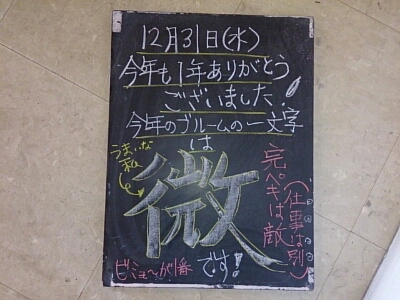 12月31日(水)
今年も1年ありがとう
ございました!
今年のブルームの一文字
は
うまいな
私
微
です!
完ペキは敵
(仕事は別)
ビミョ〜が1番